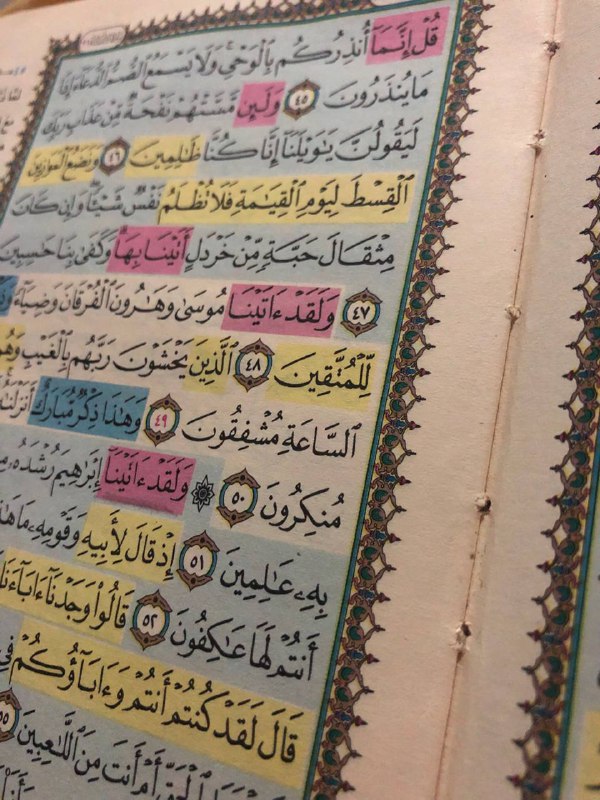 قُلْ إِنَّمَآ أُنذِرُكُم بِٱلْوَحْىِ ۚ وَلَا يَسْمَعُ ٱلصُّمُّ ٱلدُّعَآءَ إِذَا
مَا يُنذَرُونَ ٤٥ وَلَئِن مَّسَّتْهُمْ نَفْحَةٌ مِّنْ عَذَابِ رَبِّكَ
لَيَقُولُنَّ يَٰوَيْلَنَآ إِنَّا كُنَّا ظَٰلِمِينَ ٤٦ وَنَضَعُ ٱلْمَوَٰزِينَ
ٱلْقِسْطَ لِيَوْمِ ٱلْقِيَٰمَةِ فَلَا تُظْلَمُ نَفْسٌ شَيْـًٔا ۖ وَإِن كَانَ
مِثْقَالَ حَبَّةٍ مِّنْ خَرْدَلٍ أَتَيْنَا بِهَا ۗ وَكَفَىٰ بِنَا حَٰسِبِينَ
٤٧ وَلَقَدْ ءَاتَيْنَا مُوسَىٰ وَهَٰرُونَ ٱلْفُرْقَانَ وَضِيَآءً
لِّلْمُتَّقِينَ ٤٨ ٱلَّذِينَ يَخْشَوْنَ رَبَّهُم بِٱلْغَيْبِ وَهُم
ٱلسَّاعَةِ مُشْفِقُونَ ٤٩ وَهَٰذَا ذِكْرٌ مُّبَارَكٌ أَنزَلْنَٰهُ
مُنكِرُونَ ٥٠ ۞ وَلَقَدْ ءَاتَيْنَآ إِبْرَٰهِيمَ رُشْدَهُۥ
بِهِۦ عَٰلِمِينَ ٥١ إِذْ قَالَ لِأَبِيهِ وَقَوْمِهِۦ مَا
أَنتُمْ لَهَا عَٰكِفُونَ ٥٢ قَالُوا۟ وَجَدْنَآ ءَابَآءَنَا
قَالَ لَقَدْ كُنتُمْ أَنتُمْ وَءَابَآؤُكُمْ فِى
أَمْ أَنتَ مِنَ ٱللَّٰعِبِينَ ٥٥